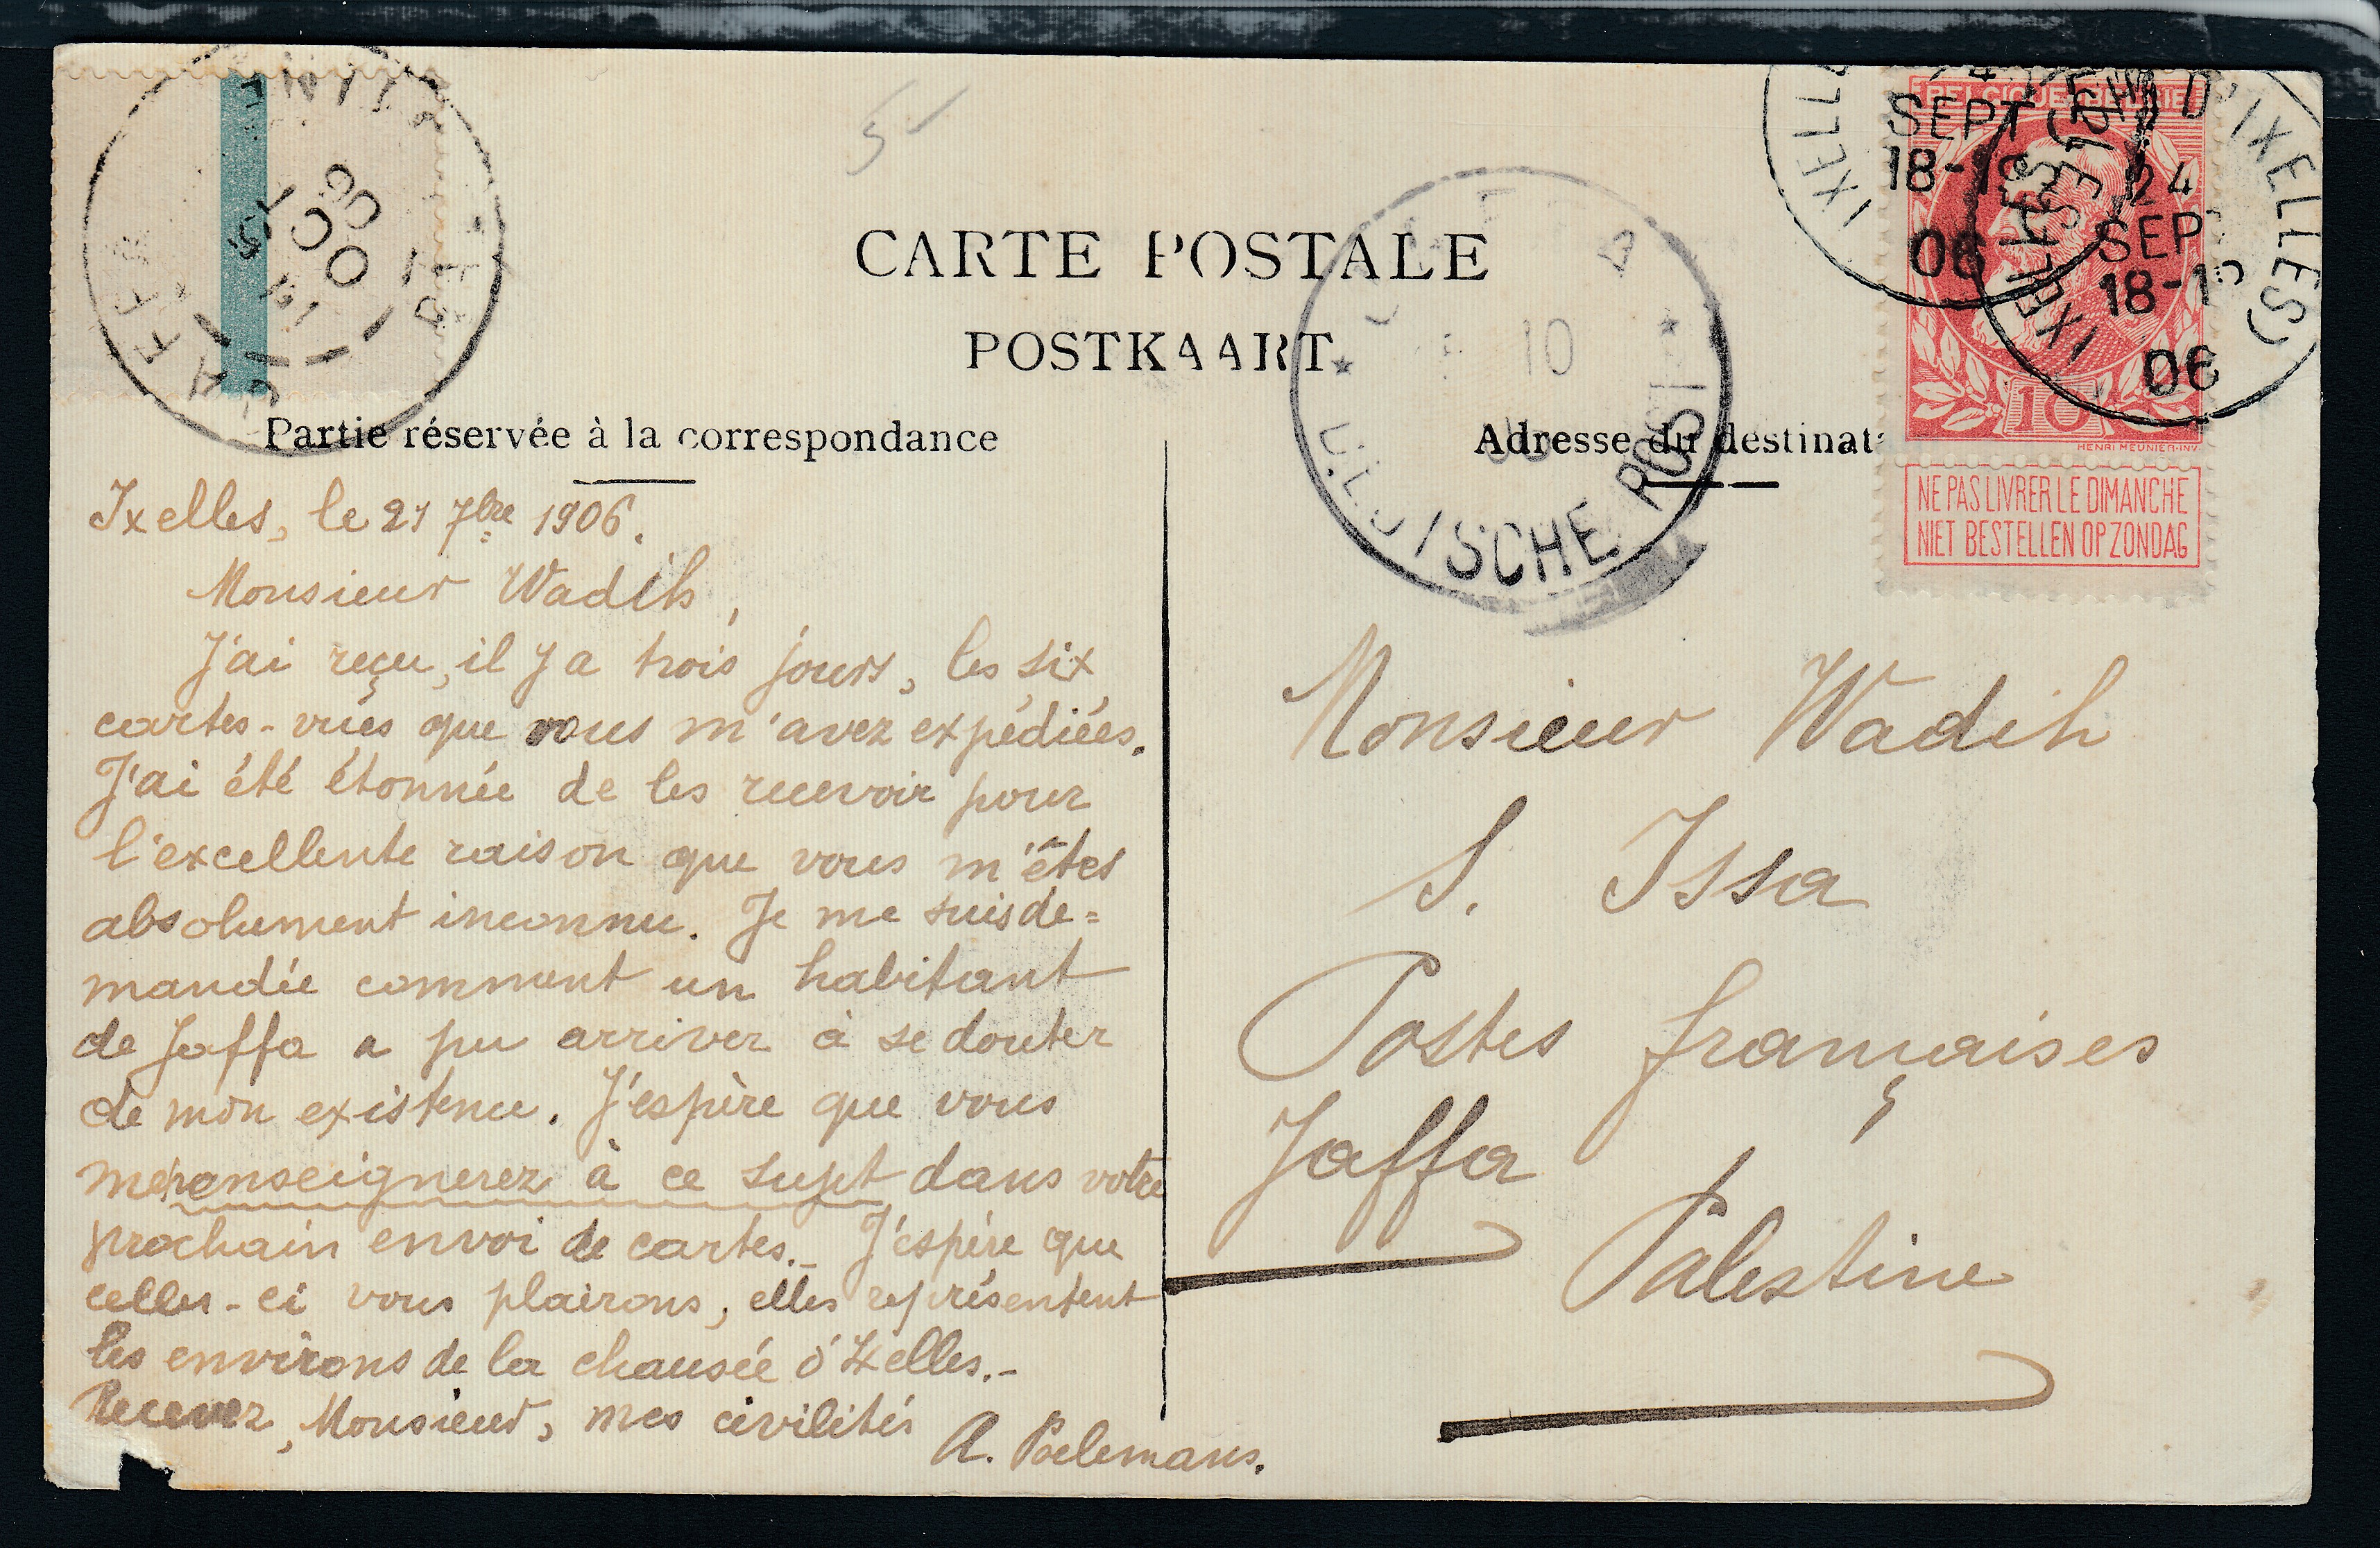 CARTE POSTALE
POSTKAART
Partie réservée à la correspondance
Adresse du destinat
Ixelles, le 21 7bre 1906.
Monsieur Wadih,
J'ai reçu, il y a trois jours, les six
cartes-vues que vous m'avez expédiées.
J'ai été étonnée de les recevoir pour
l'excellente raison que vous m'êtes
absolument inconnu. Je me suis de=
mandée comment un habitant
de Jaffa a pu arriver à se douter
de mon existence. J'espère que vous
me renseignerez à ce sujet dans votre
prochain envoi de cartes._ J'espère que
celles-ci vous plairons, elles représentent
les environs de la chausée d'Ixelles.-
Recevez, Monsieur, mes civilités
A. Poelemans.
Monsieur Wadih
S. Issa
Postes françaises
Jaffa
Palestine
BELGIQUE BELGIE
10
HENRI MEUNIER·INV.
NE PAS LIVRER LE DIMANCHE
NIET BESTELLEN OP ZONDAG
IXELL
SEPT
18-19
06
24
SEPT
18-19
06
IXELLES
D'IXELLES)
10
DEUTSCHE POST
JAFFA
OCT
06